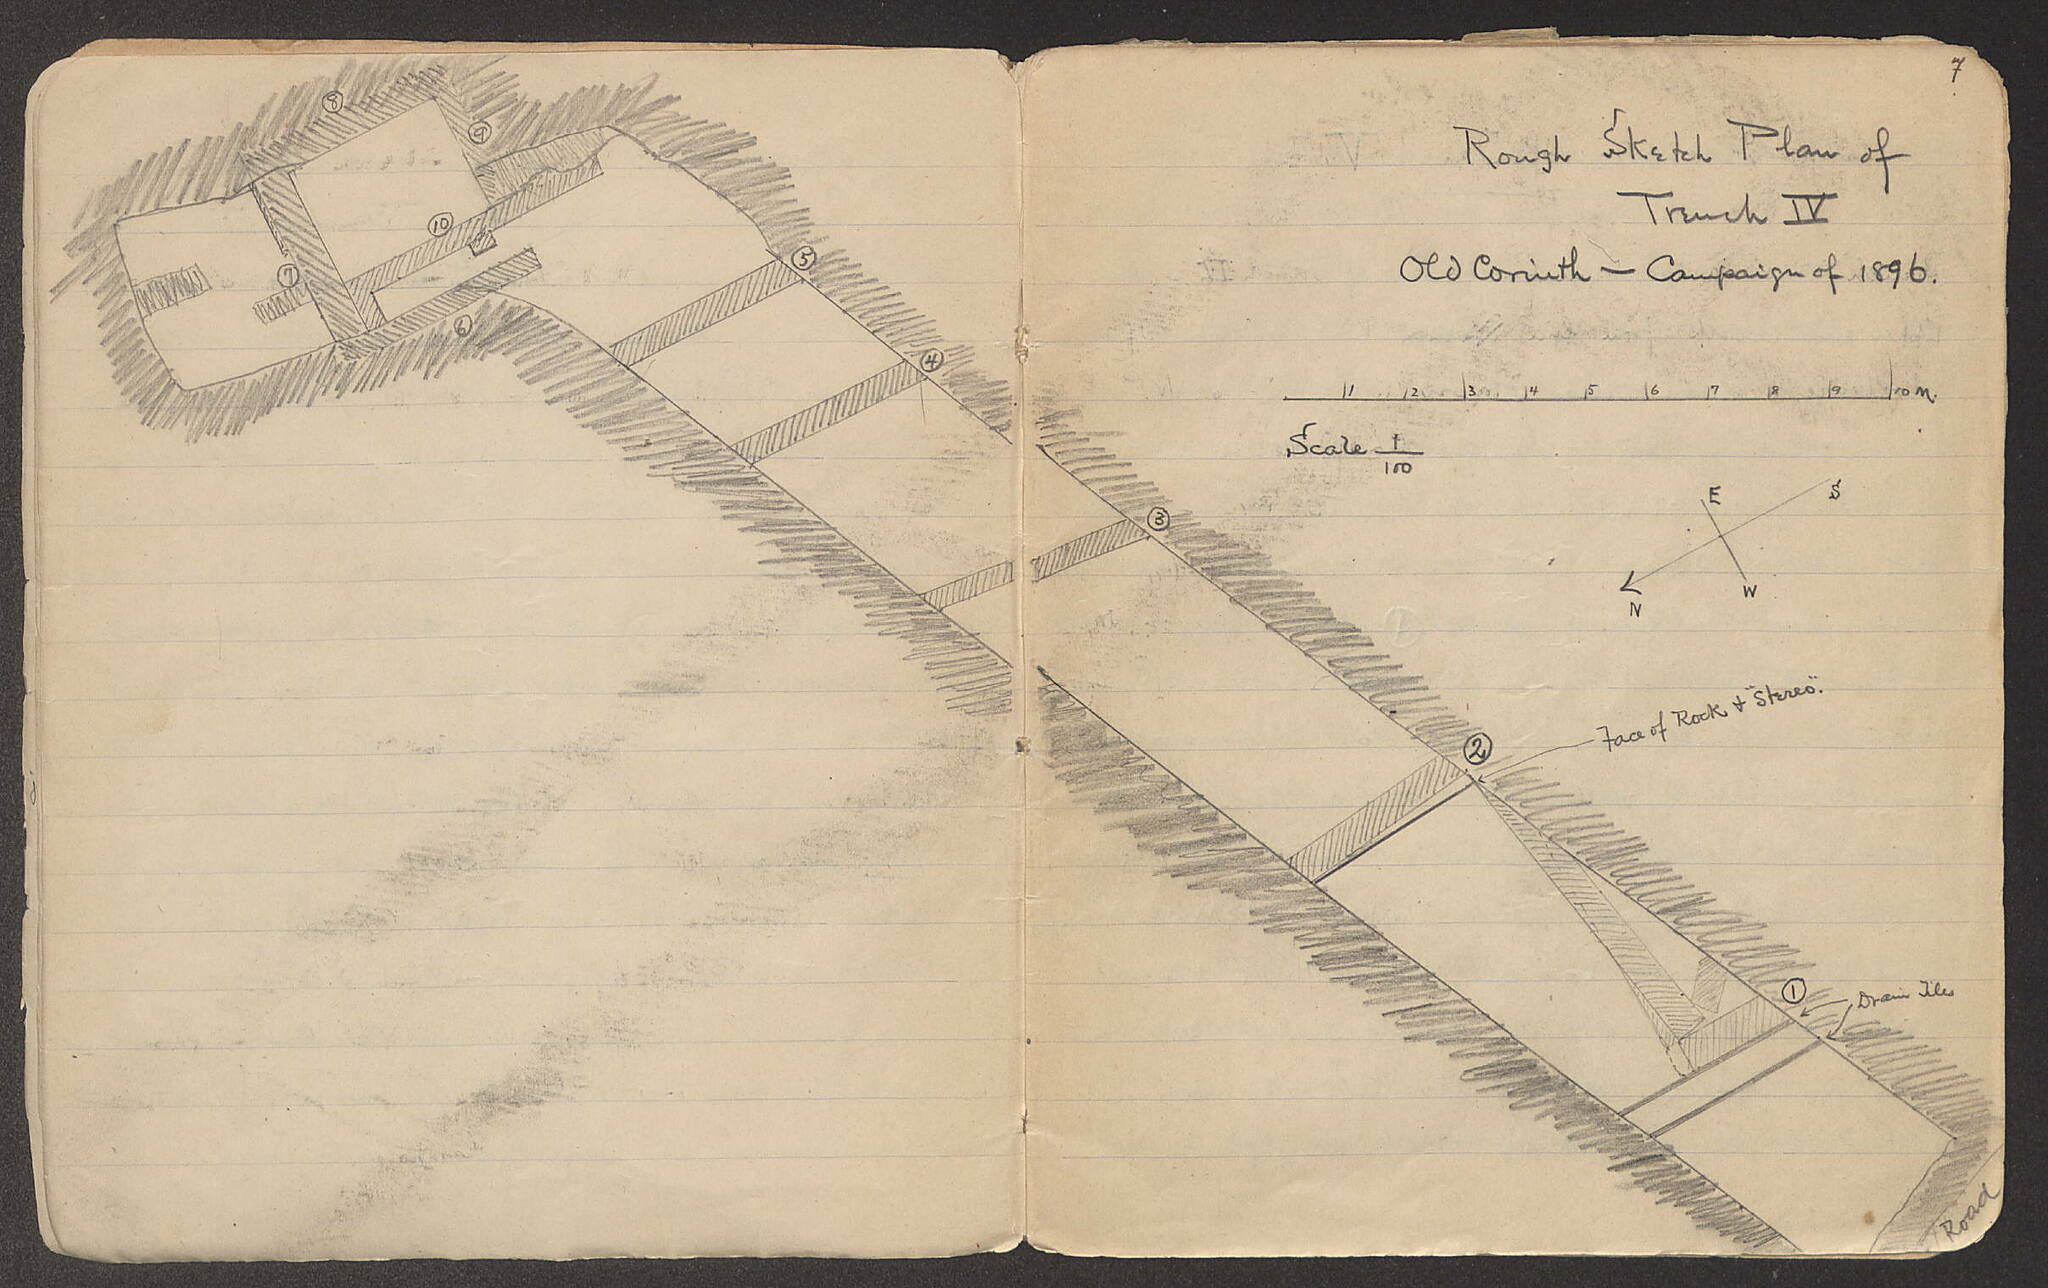 7
Rough Sketch Plan of
Trench IV
Old Corinth — Campaign of 1896.
1 2 3 4 5 6 7 8 9 10 M.
Scale 1/100
E S
N W
Face of Rock & "Stereo".
Drain Tiles
Road
8
9
10
7
6
5
4
3
2
1